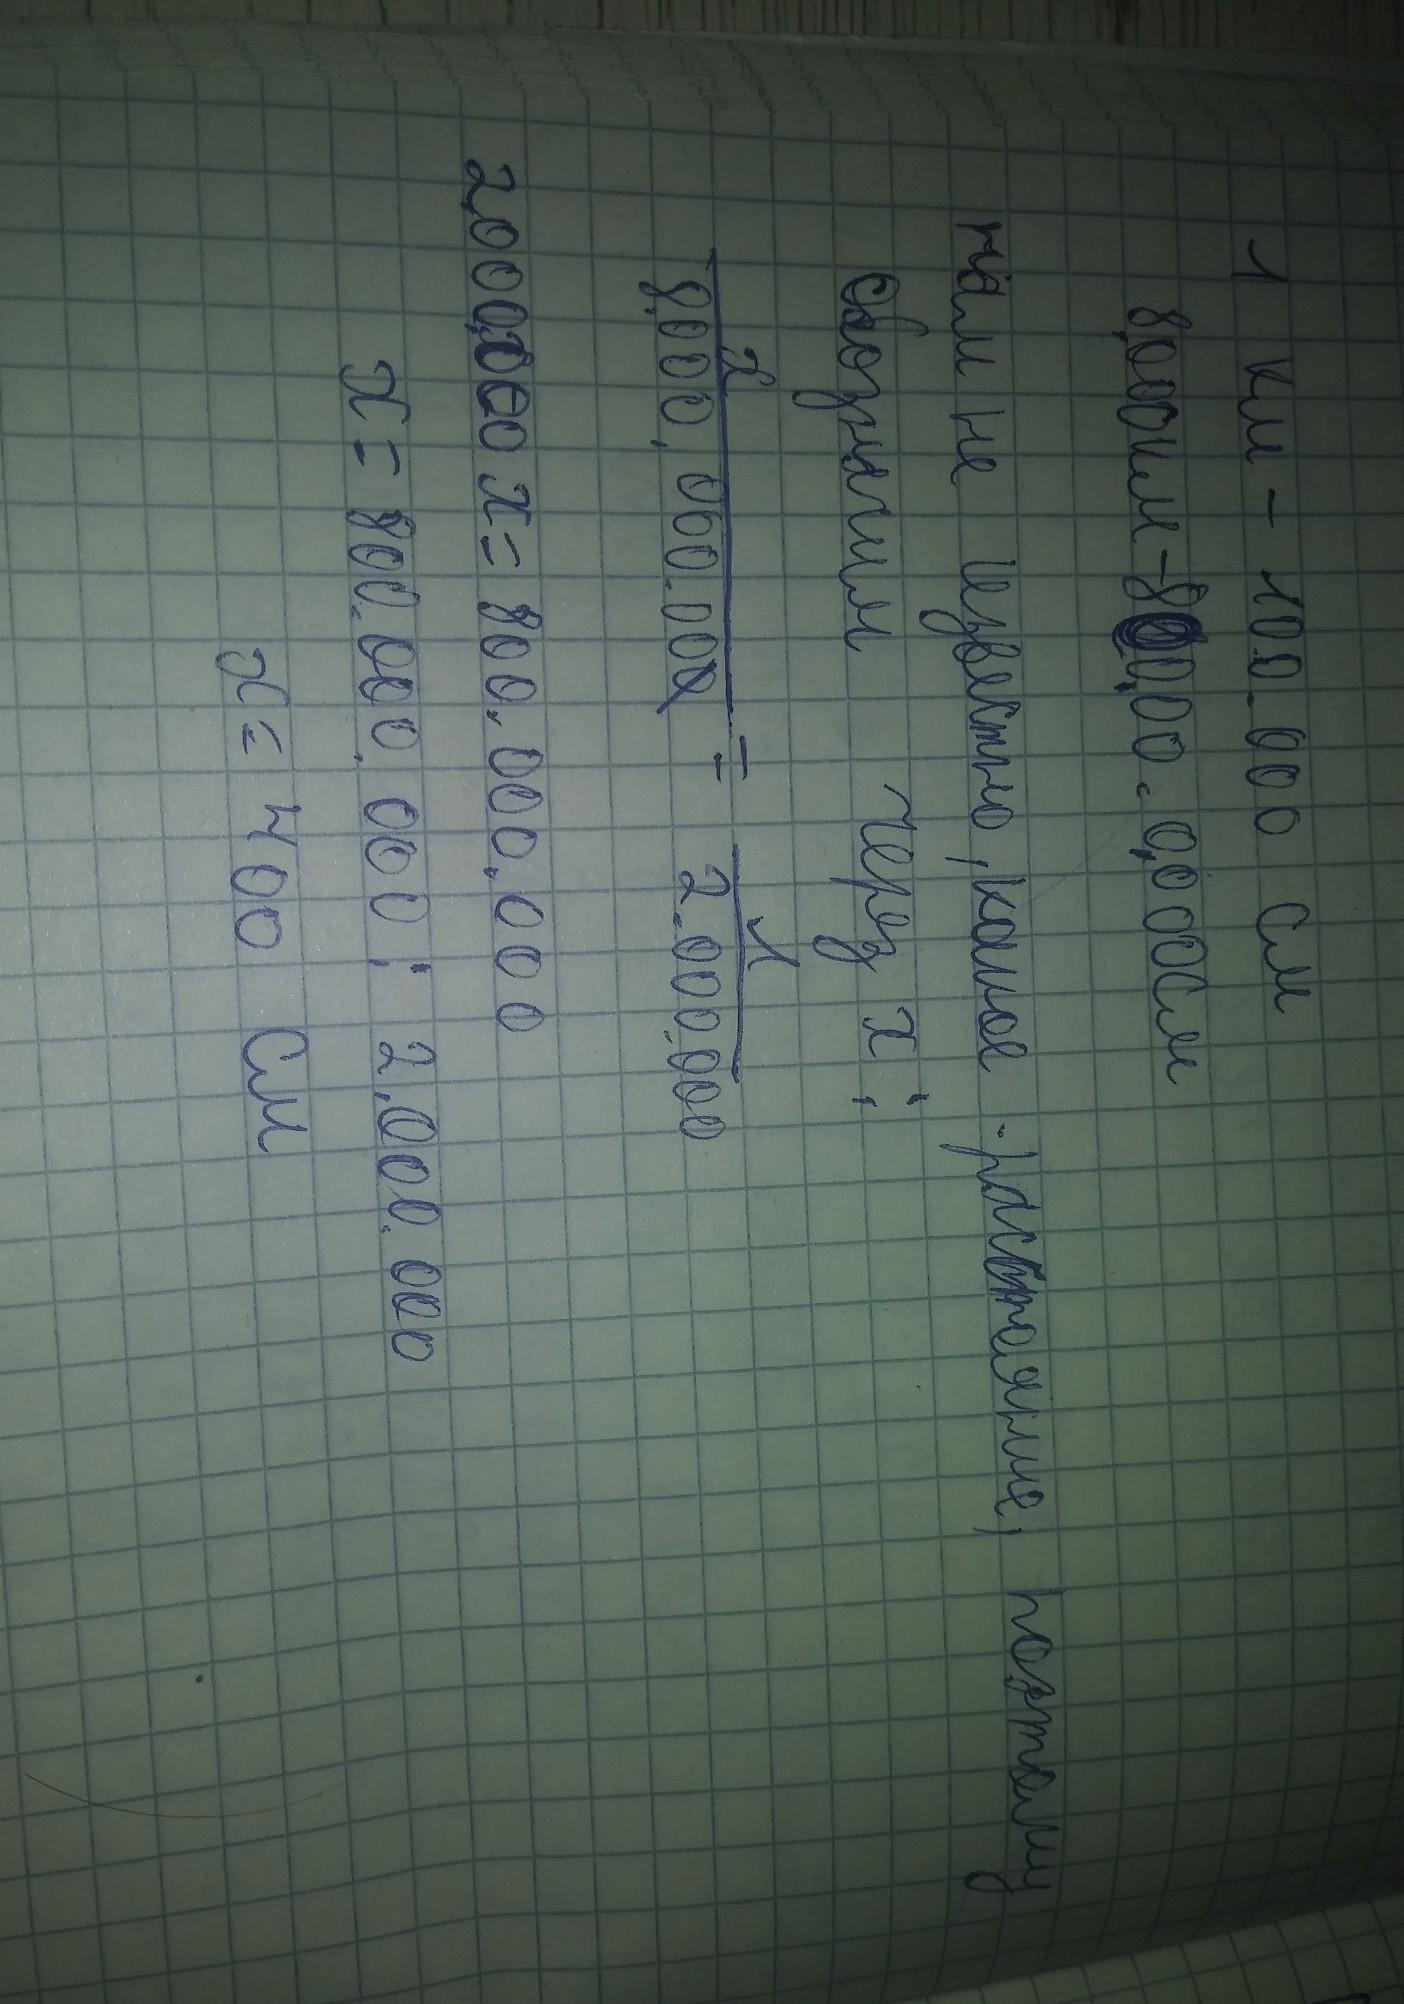 1 км - 100.000 см
8,000км - 800,00.0,000см
нам не известно, какое расстояние, поэтому
обозначим через x:
x / 8,000,000.000 = 1 / 2.000.000
2,000,000 x = 800,000,000
x = 800.000.000 : 2,000.000
x = 400 см